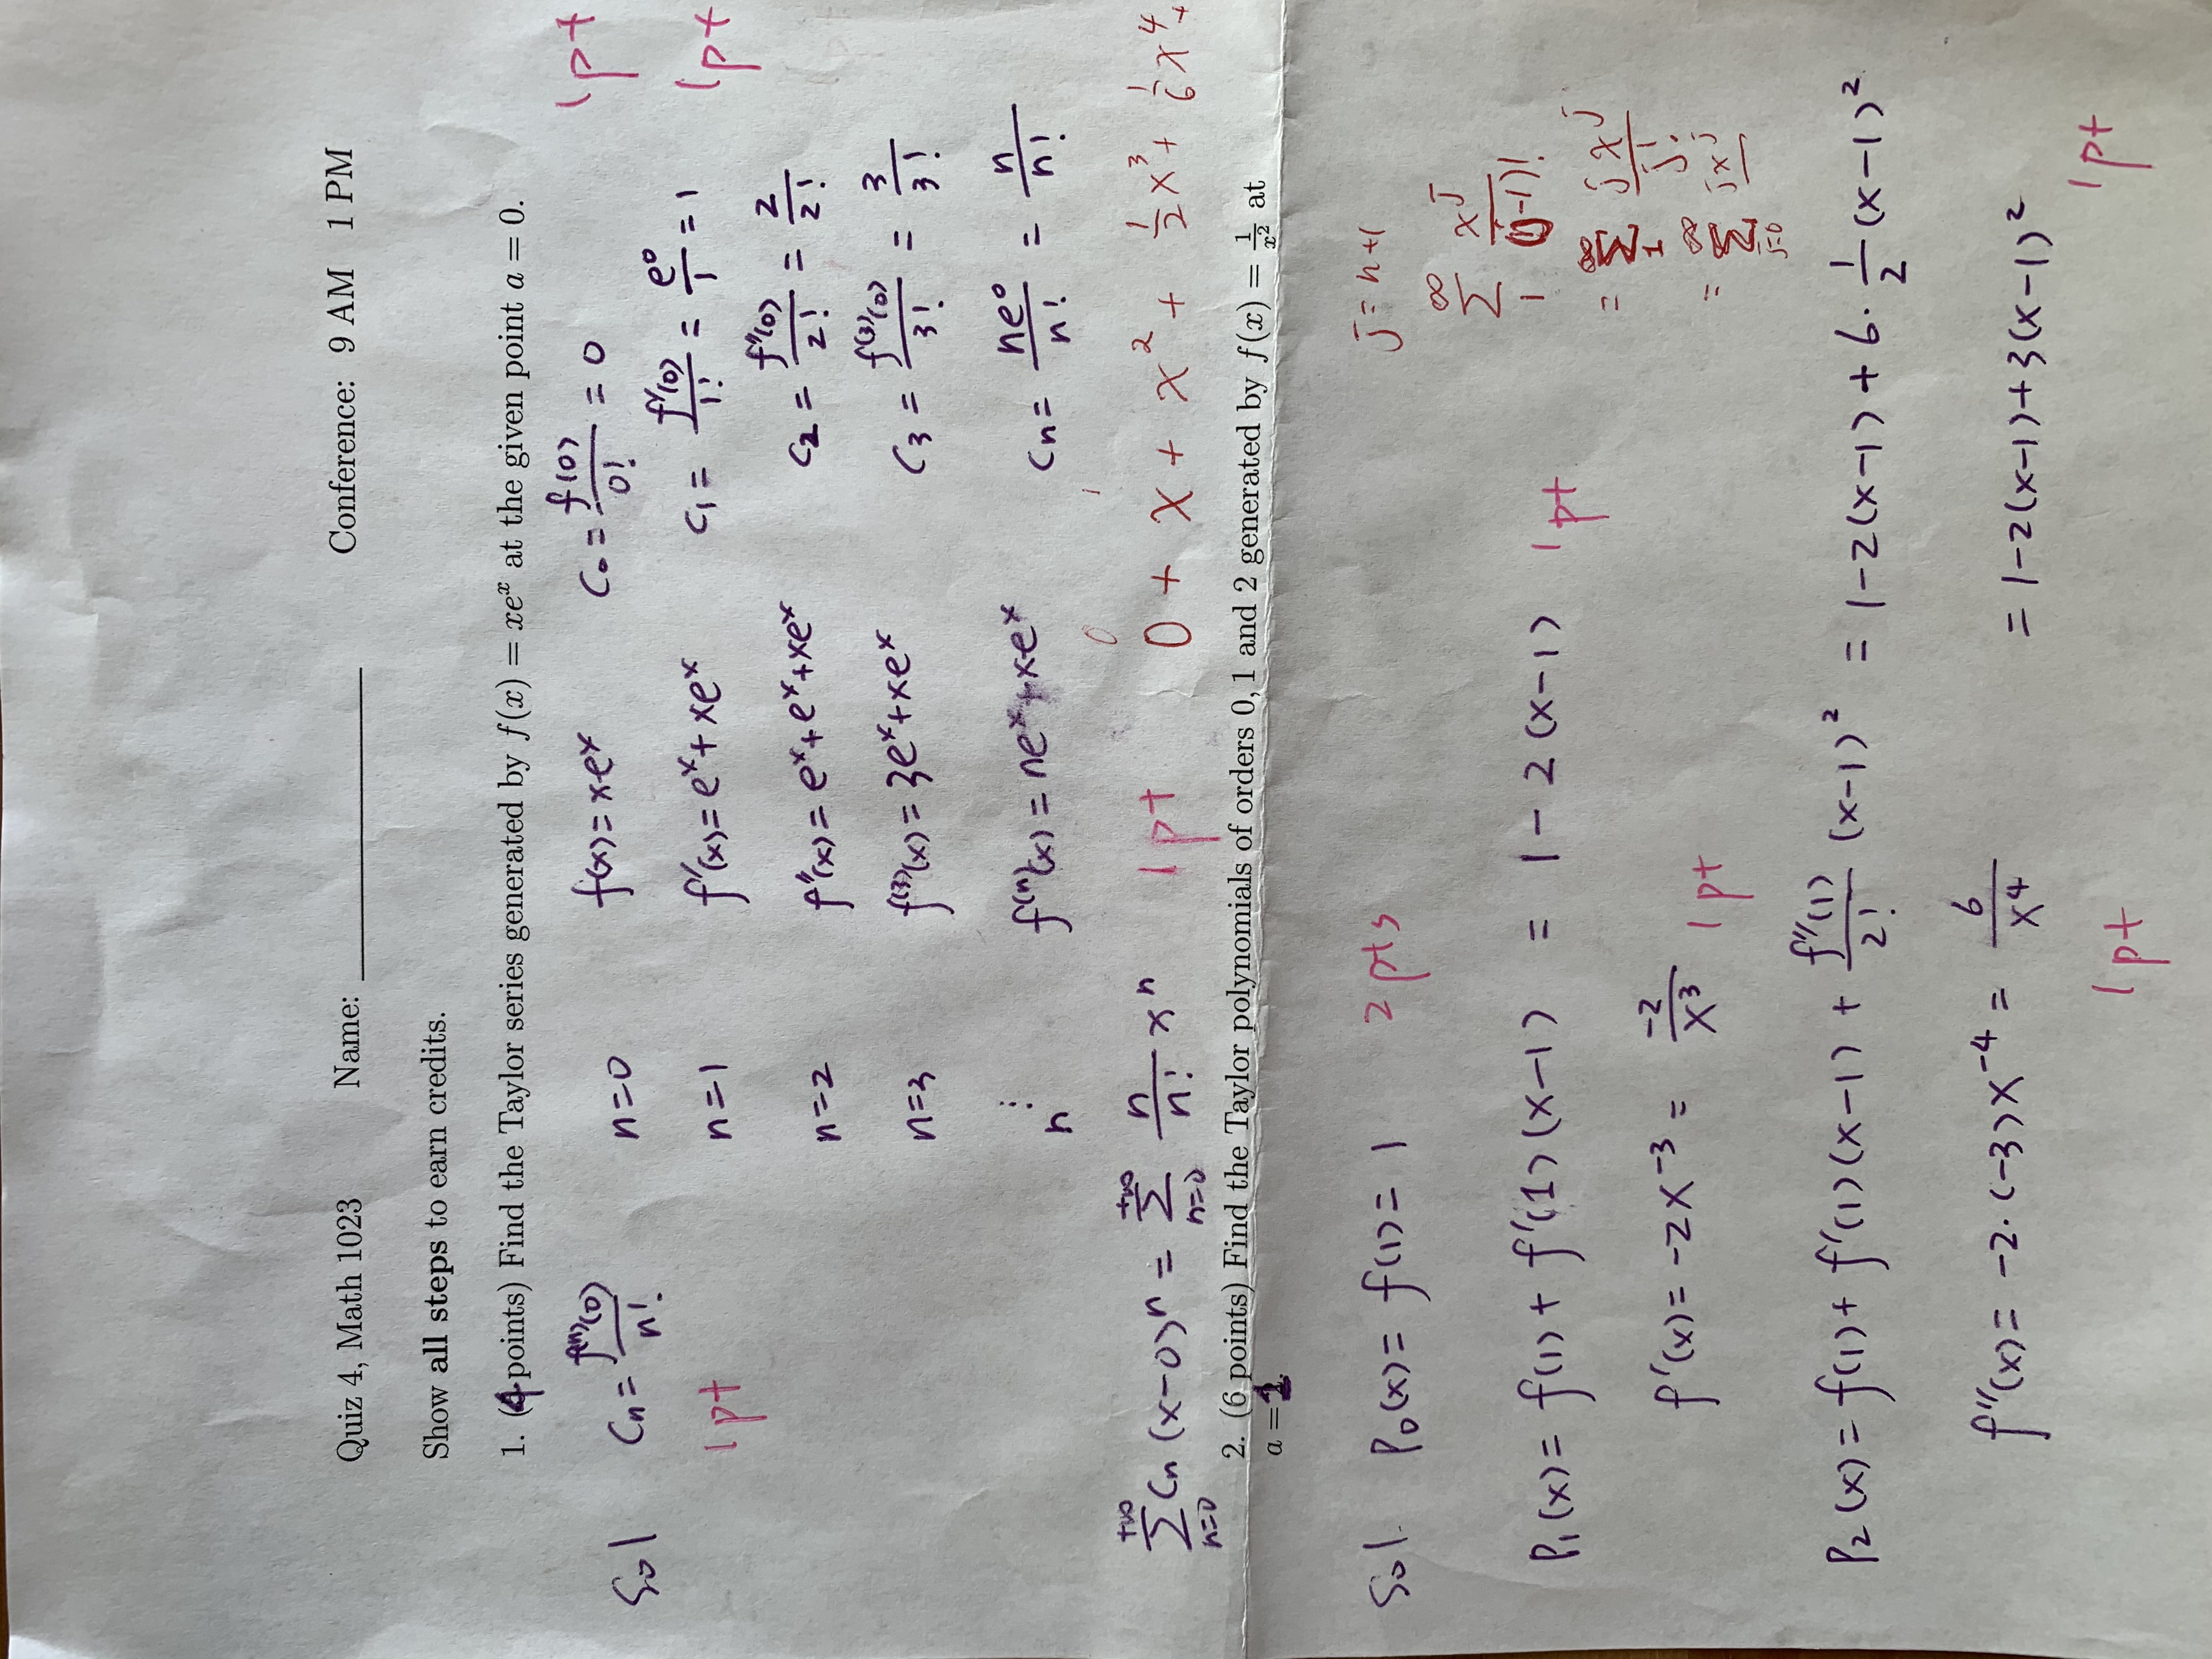 Quiz 4, Math 1023 Name: ____________ Conference: 9 AM 1 PM
Show all steps to earn credits.
1. (4 points) Find the Taylor series generated by f(x) = xeˣ at the given point a = 0.
Sol Cn = f⁽ⁿ⁾(0)/n! n=0 f(x) = xeˣ C₀ = f(0)/0! = 0 1pt
1pt n=1 f'(x) = eˣ + xeˣ C₁ = f'(0)/1! = e⁰/1 = 1 1pt
n=2 f''(x) = eˣ + eˣ + xeˣ C₂ = f''(0)/2! = 2/2!
n=3 f⁽³⁾(x) = 3eˣ + xeˣ C₃ = f⁽³⁾(0)/3! = 3/3!
⋮
n f⁽ⁿ⁾(x) = neˣ + xeˣ Cn = ne⁰/n! = n/n!
0 1
+∞ Σ n=0 Cn (x-0)ⁿ = +∞ Σ n=0 n/n! xⁿ 1pt 0 + x + x² + 1/2 x³ + 1/6 x⁴ +
2. (6 points) Find the Taylor polynomials of orders 0, 1 and 2 generated by f(x) = 1/x² at
a = 1.
Sol. P₀(x) = f(1) = 1 2 pts
j = n+1
∞ Σ 1 xʲ/(j-1)!
P₁(x) = f(1) + f'(1)(x-1) = 1 - 2(x-1) 1pt
= ∞ Σ 1 jxʲ/j!
f'(x) = -2x⁻³ = -2/x³ 1pt
= ∞ Σ j=0 jxʲ
P₂(x) = f(1) + f'(1)(x-1) + f''(1)/2! (x-1)² = 1-2(x-1) + 6· 1/2 (x-1)²
f''(x) = -2·(-3)x⁻⁴ = 6/x⁴ = 1-2(x-1)+3(x-1)²
1pt 1pt